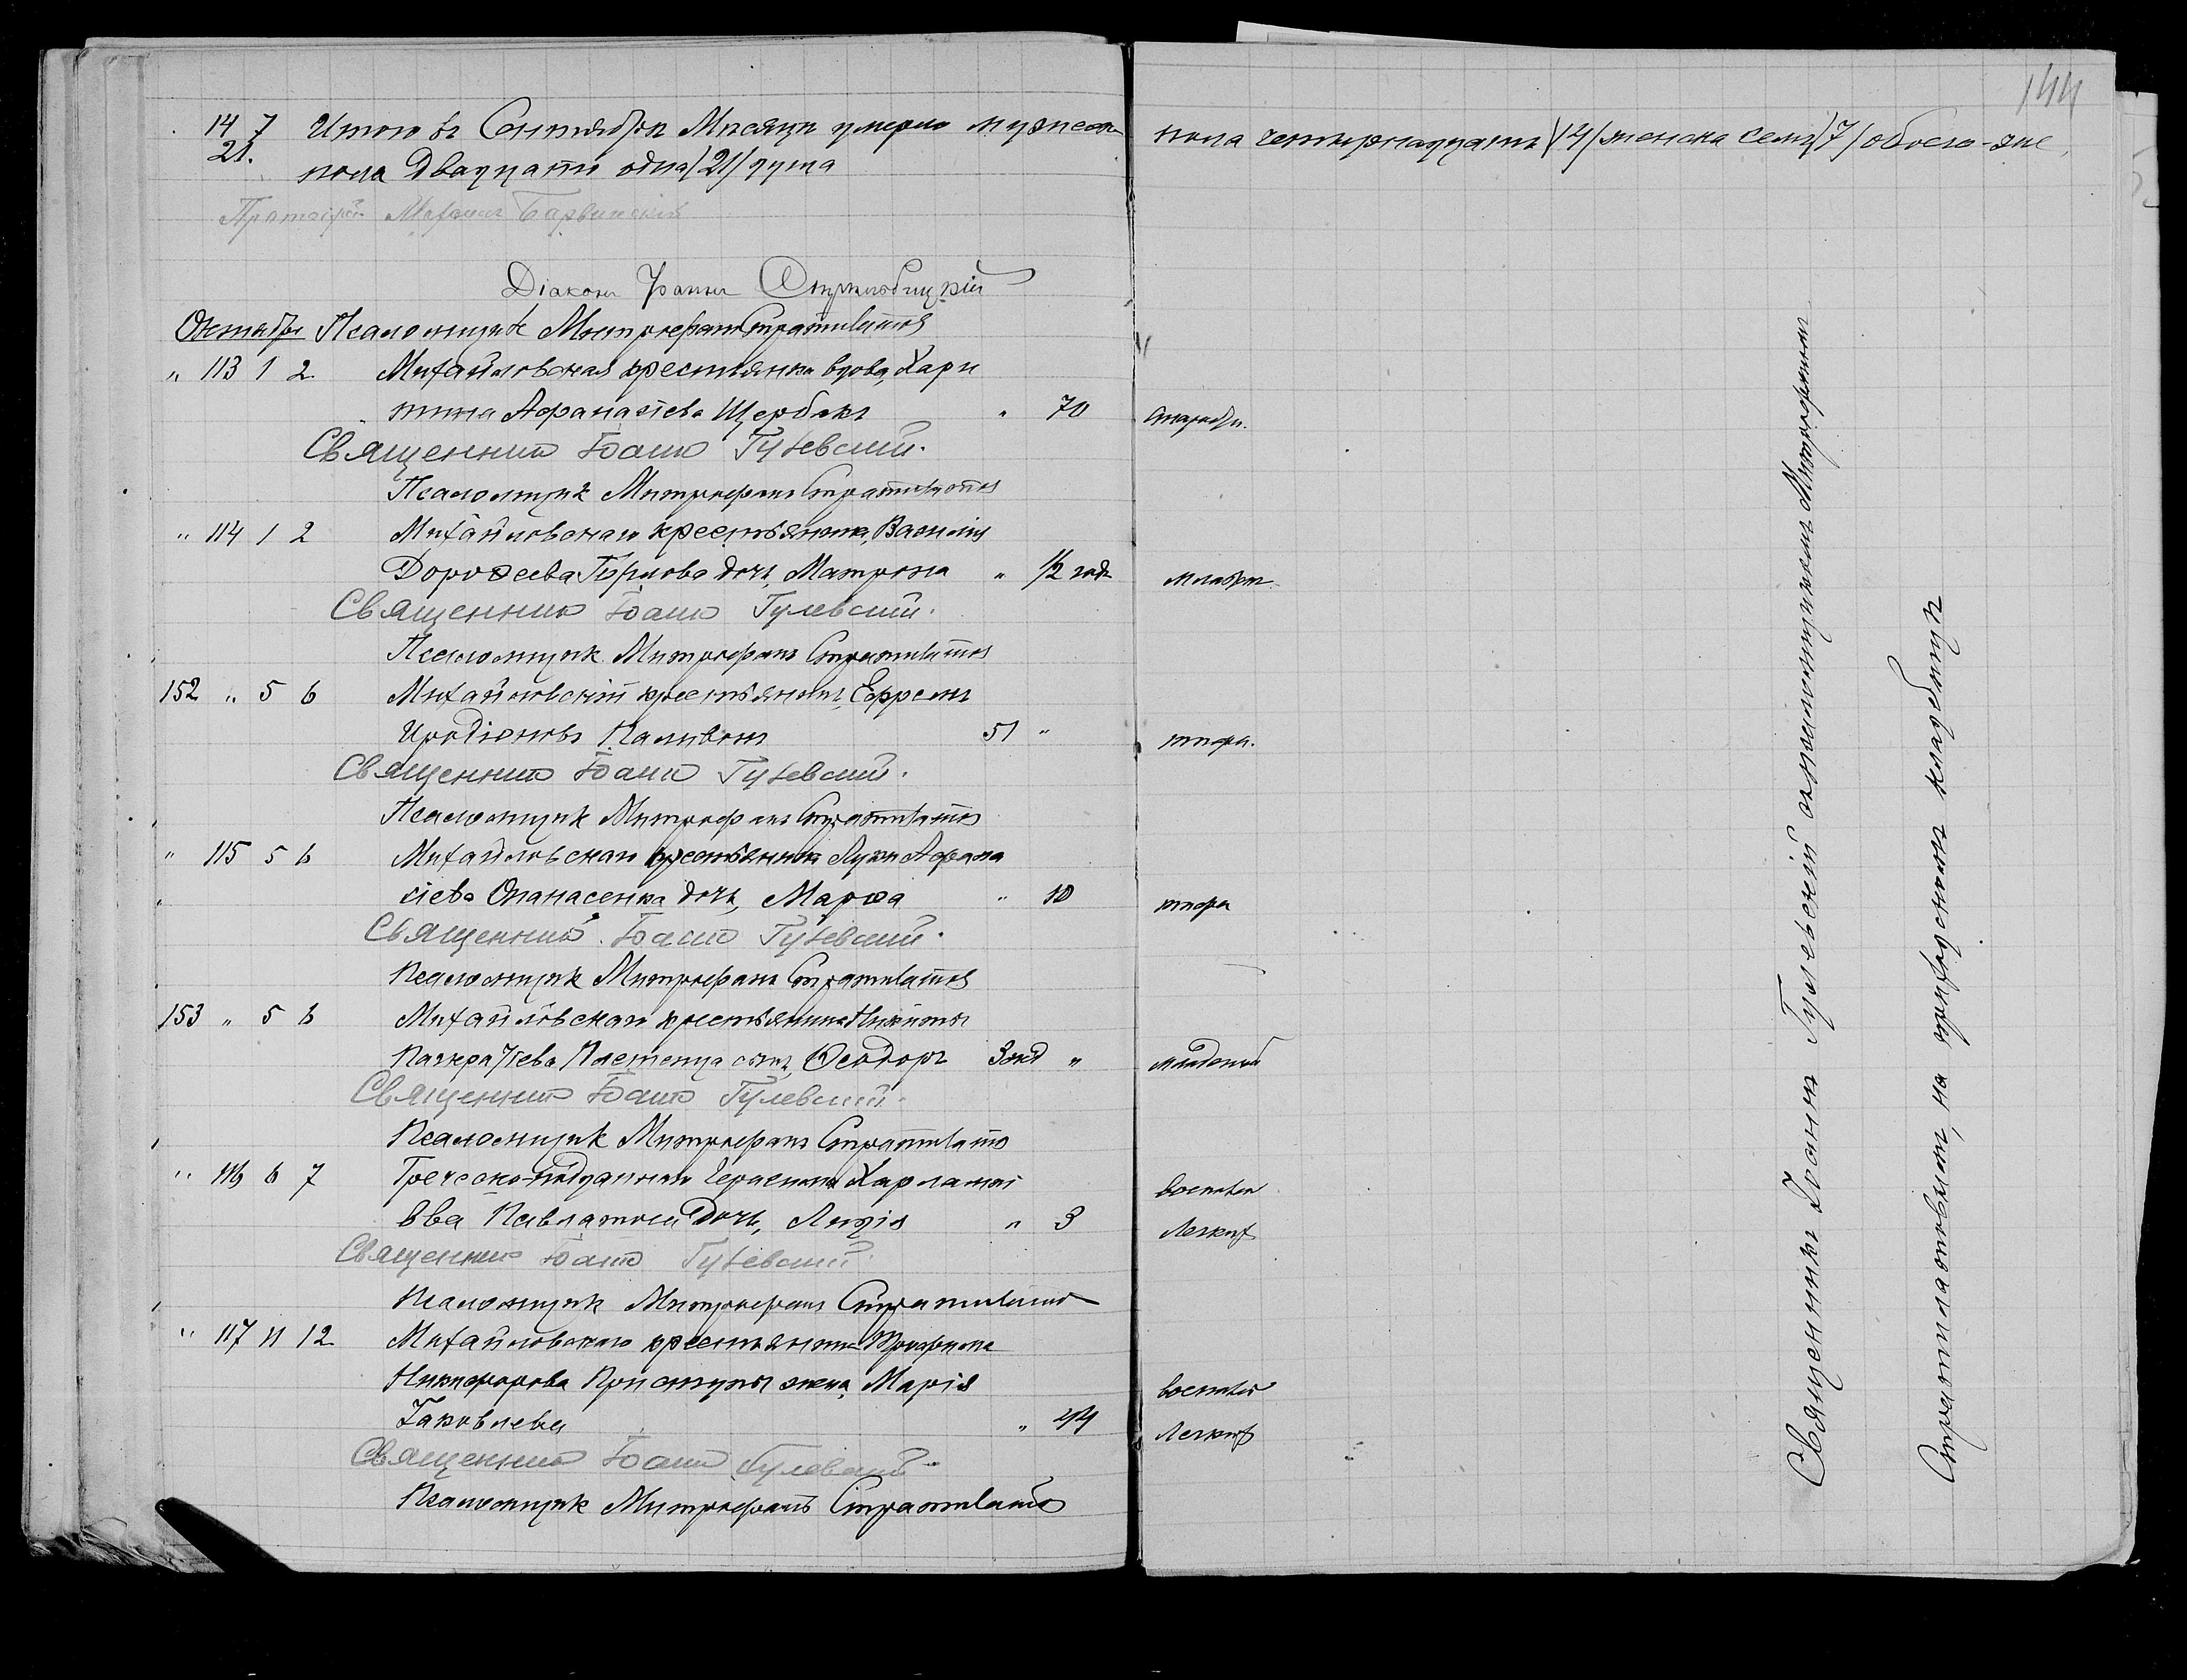 144
14 7 Итого въ Сентябрѣ Мѣсяцѣ умерло мужеска пола четырнадцать /14/ женска семь /7/ обоего-же
21. пола Двадцати одна /21/ душа
Протоіерей Барвинскій
Діаконъ Іоаннъ Стрильбицкій
Октябрь Псаломщикъ Митрофанъ Стратилатовъ
" 113 1 2 Михайловская крестьянка вдова, Хари
тина Аѳанасіева Щербакъ " 70 старости
Священникъ Іоаннъ Гулевскій.
Псаломщикъ Митрофанъ Стратилатовъ
" 114 1 2 Михайловскаго крестьянина, Василія
Дороѳеева дочь, Матрона " 1/2 года младен.
Священникъ Іоаннъ Гулевскій.
Псаломщикъ Митрофанъ Стратилатовъ
152 " 5 6 Михайловскій крестьянинъ, Ефремъ
Иродіоновъ 51 "
Священникъ Іоаннъ Гулевскій.
Псаломщикъ Митрофанъ Стратилатовъ
" 115 5 6 Михайловскаго крестьянина Луки Аѳана
сіева Опанасенка дочь, Марѳа " 10
Священникъ Іоаннъ Гулевскій.
Псаломщикъ Митрофанъ Стратилатовъ
153 " 5 6 Михайловскаго крестьянина Никиты
Панкратіева Плетенца сынъ, Ѳеодоръ 3 " младенч
Священникъ Іоаннъ Гулевскій.
Псаломщикъ Митрофанъ Стратилатовъ
" 116 6 7 Греческо-подданнаго Герасима Харлампі
ева дочь, Лидія " 3 воспален Легких
Священникъ Іоаннъ Гулевскій.
Псаломщикъ Митрофанъ Стратилатовъ
" 117 11 12 Михайловскаго крестьянина Трофима
Никифорова Приступы жена, Марія воспален
Іаковлева " 44 Легких
Священникъ Іоаннъ Гулевскій
Псаломщикъ Митрофанъ Стратилатовъ
Священникъ Іоаннъ Гулевскій съ псаломщикомъ Митрофаномъ
Стратилатовымъ, на приходскомъ кладбищѣ